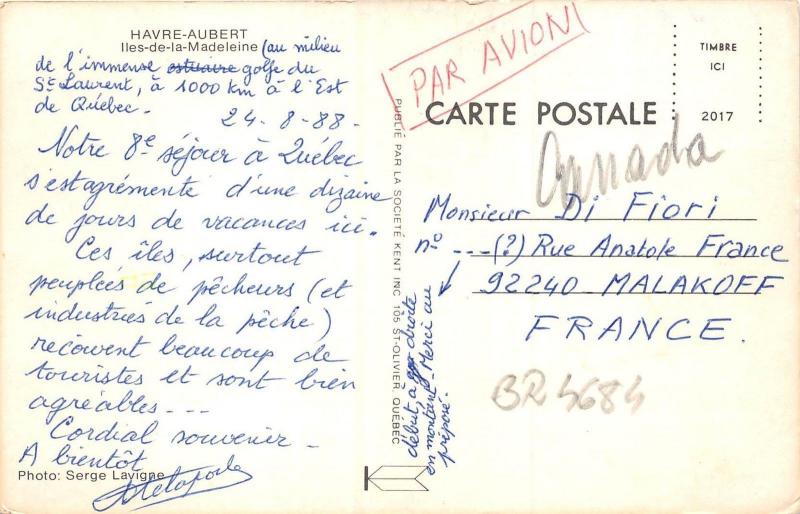 HAVRE-AUBERT
Iles-de-la-Madeleine (au milieu
de l'immense estuaire golfe du
St Laurent, à 1000 km à l'Est
de Québec.
24-8-88-
Notre 8e séjour à Quebec
s'est agrémente d'une dizaine
de jours de vacances ici.
Ces îles, surtout
peuplées de pêcheurs (et
industries de la pêche)
reçoivent beaucoup de
touristes et sont bien
agréables---
Cordial souvenir-
A bientôt
Photo: Serge Lavigne
PUBLIÉ PAR LA SOCIÉTÉ KENT INC 105 ST-OLIVIER, QUÉBEC
PAR AVION
TIMBRE
ICI
CARTE POSTALE
2017
Canada
Monsieur Di Fiori
n° ---(?) Rue Anatole France
92240 MALAKOFF
FRANCE.
début, à droite
en montant. Merci au
préposé.
BR 4684